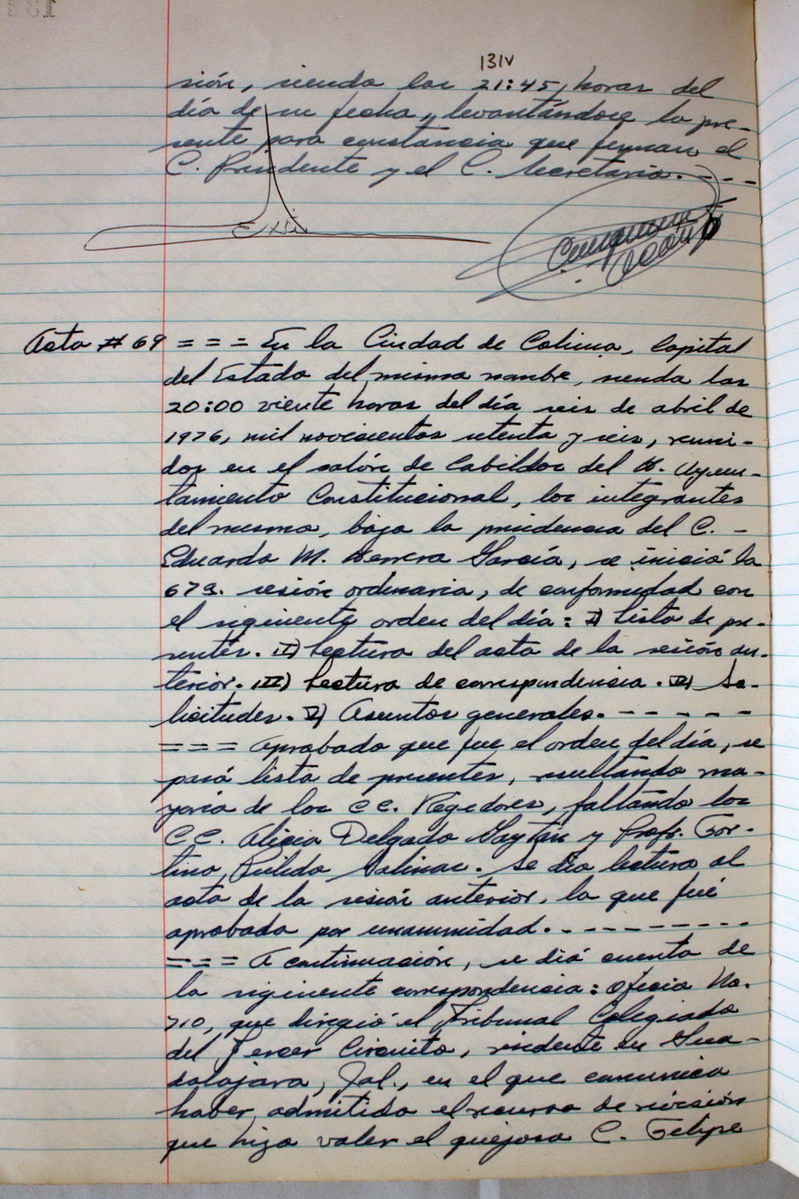 131V
sión, siendo las 21:45, horas del
día de su fecha, levantándose la pre-
sente para constancia que firman el
C. Presidente y el C. Secretario. - - -
Acta # 69 = = = En la Ciudad de Colima, Capital
del Estado del mismo nombre, siendo las
20:00 viente horas del día seis de abril de
1976, mil novecientos setenta y seis, reuni-
dos en el salón de Cabildos del H. Ayun-
tamiento Constitucional, los integrantes
del mismo, bajo la presidencia del C. -
Eduardo M. Herrera García, se inició la
67a. sesión ordinaria, de conformidad con
el siguiente orden del día: I) Lista de pre-
sentes. II) Lectura del acta de la sesión an-
terior. III) Lectura de correspondencia. IV) So-
licitudes. V) Asuntos generales. - - - - - -
= = = Aprobado que fue el orden del día, se
pasó lista de presentes, resultando ma-
yoría de los CC. Regidores, faltando los
CC. Alicia Delgado Gaytán y Profr. For-
tino Pulido Salinas. Se dio lectura al
acta de la sesión anterior, la que fué
aprobada por unanimidad. - - - - - - - - - -
= = = A continuación, se dió cuenta de
la siguiente correspondencia: oficio No.
710, que dirigió el Tribunal Colegiado
del Tercer Circuito, residente en Gua-
dalajara, Jal., en el que comunica
haber admitido el recurso de revisión
que hizo valer el quejoso C. Felipe